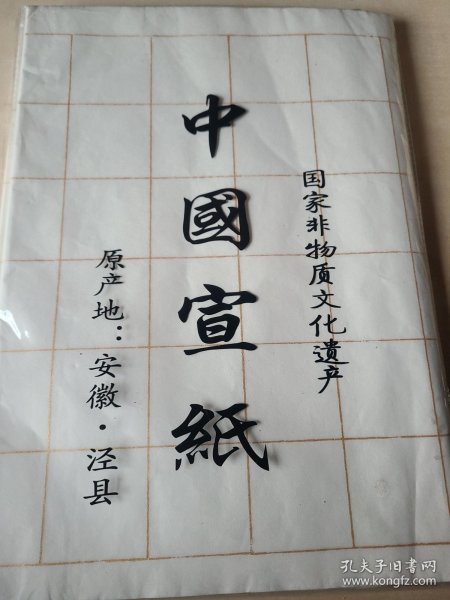 国家非物质文化遗产
中國宣紙
原产地：安徽·泾县
孔夫子旧书网
www.kongfz.com